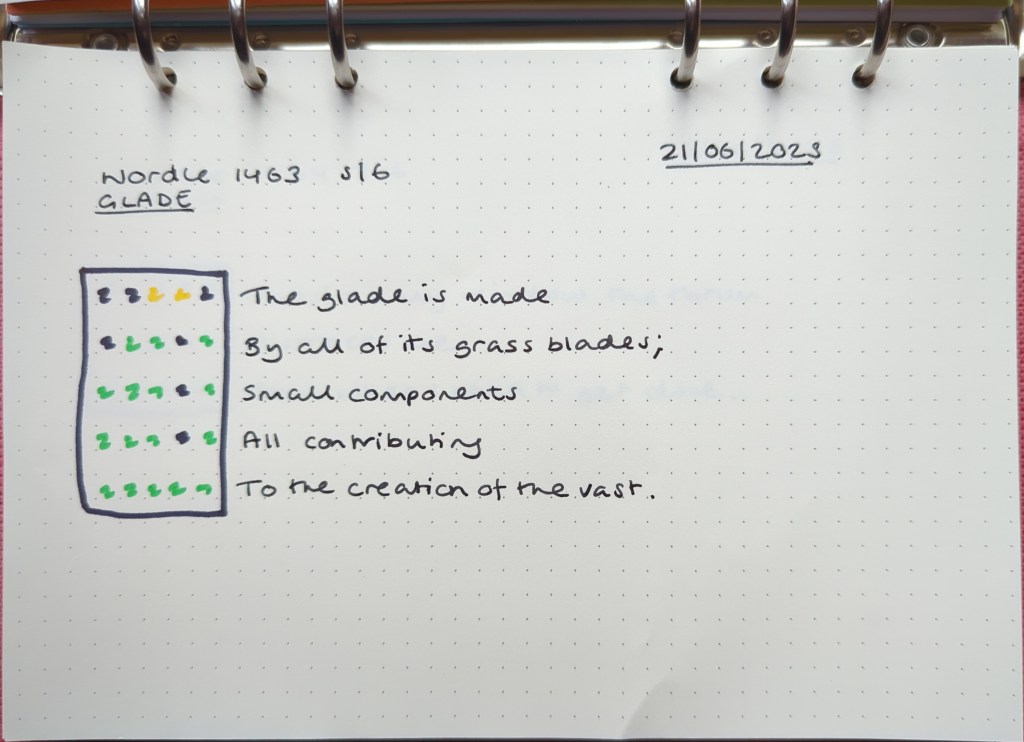 21/06/2023
Wordle 1463 5/6
GLADE
The glade is made
By all of its grass blades;
Small components
All contributing
To the creation of the vast.